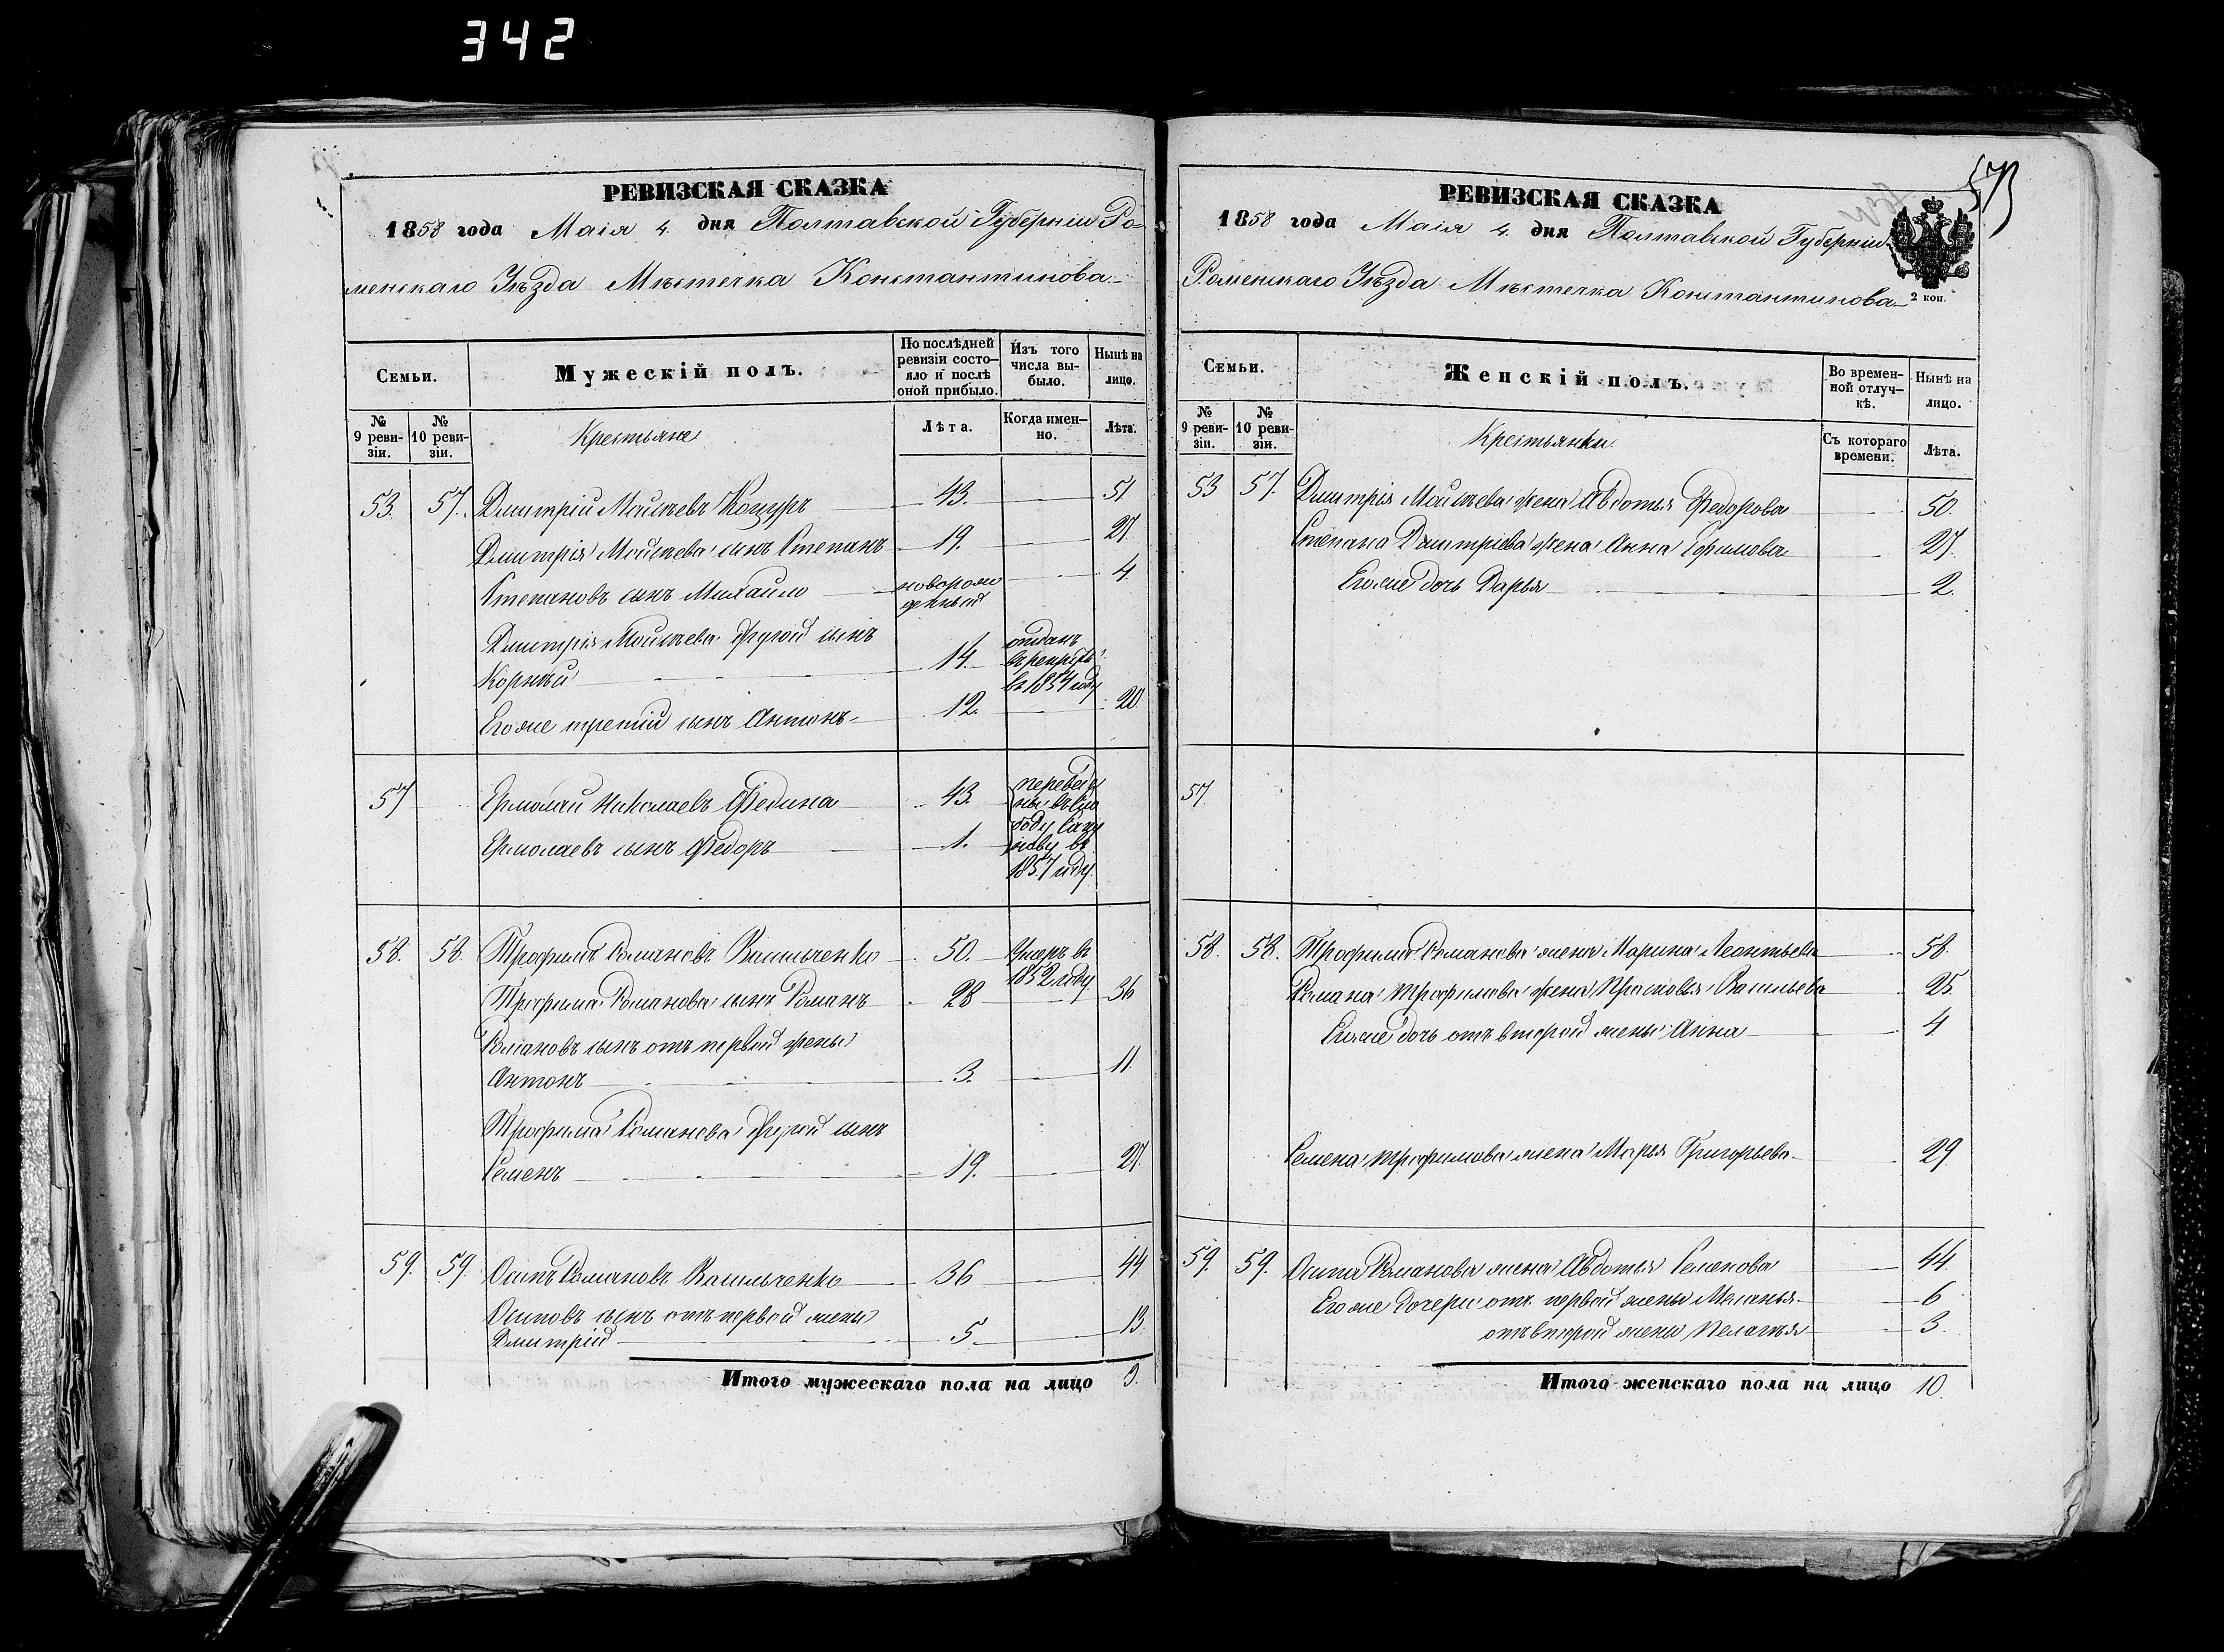 342
РЕВИЗСКАЯ СКАЗКА
1858 года Маія 4. дня Полтавской Губерніи Ро-
менскаго Уѣзда Мѣстечка Константинова
Семьи.
Мужескій полъ.
По послѣдней ревизіи состо-
яло и послѣ оной прибыло.
Изъ того числа вы-
было.
Нынѣ на лицо.
№ 9 реви-
зіи.
№ 10 реви-
зіи.
Крестьяне
Лѣта.
Когда имен-
но.
Лѣта.
53. 57. Дмитрій Мойсѣевъ 43. 51
Дмитрія Мойсѣева сынъ Степанъ 19. 27.
Степановъ сынъ Михайло новорож
денный 4.
Дмитрія Мойсѣева другой сынъ
Корнѣй 14. отданъ
въ рекруты
въ 1854 году
Его же третій сынъ Антонъ 12. 20.
57 Ермолай Николаевъ Федина 43. переведе
ны въ Сло
Ермолаевъ сынъ Федоръ 1. боду
въ
1857 году.
58. 58. Трофимъ Романовъ Васильченко 50. Умеръ въ
1852 году.
Трофима Романова сынъ Романъ 28 36
Романовъ сынъ отъ первой жены
Антонъ 3. 11.
Трофима Романова другой сынъ
Семенъ 19. 27.
59. 59. Осипъ Романовъ Васильченко 36 44
Осиповъ сынъ отъ первой жены
Дмитрій 5 13
Итого мужескаго пола на лицо 9.
573
РЕВИЗСКАЯ СКАЗКА
1858 года Маія 4. дня Полтавской Губерніи
Роменскаго Уѣзда Мѣстечка Константинова
2 коп.
Семьи.
Женскій полъ.
Во времен-
ной отлуч-
кѣ.
Нынѣ на лицо.
№ 9 реви-
зіи.
№ 10 реви-
зіи.
Крестьянки
Съ котораго времени.
Лѣта.
53 57. Дмитрія Мойсѣева жена Авдотья Федорова 50.
Степана Дмитріева жена Анна 27.
Его же дочь Дарья 2.
57.
58. 58. Трофима Романова жена Марина Леонтьева 58.
Романа Трофимова жена Прасковья Васильева 25.
Его же дочь отъ второй жены Анна 4
Семена Трофимова жена Марья Григорьева 29
59. 59. Осипа Романова жена Авдотья Семенова 44.
Его же дочери отъ первой жены Меланья 6
отъ второй жены Пелагѣя 3.
Итого женскаго пола на лицо 10.